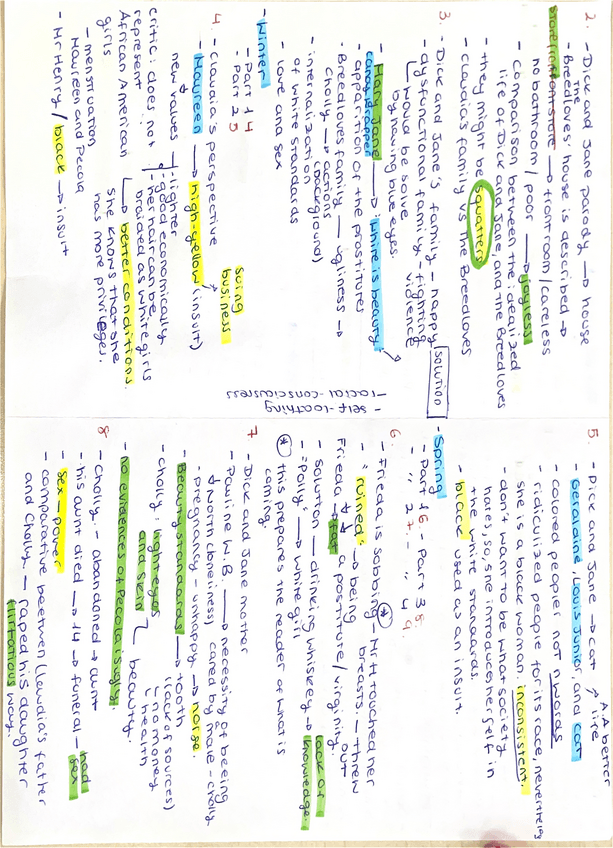 2. - Dick and Jane parody → house
- The Breedloves' house is described →
storefront store → front room / careless
no bathroom / poor → joyless
- Comparison between the idealized
life of Dick and Jane, and the Breedloves
- they might be squatters
- Claudia's family vs the Breedloves
3. - Dick and Jane's family - happy
- dysfunctional family - fighting violence
↳ would be solve
by having blue eyes.
solution
- Mary Jane → white is beauty
candy paper
- apparition of the prostitutes
- Breedloves family — ugliness →
Cholly → actions
(background)
- internalization
of white standards
- love and sex
- self-loathing
- racial-consciousness
- Winter
- Part 1 4
- Part 2 5
4. - Claudia's perspective
- Maureen → high-yellow (insult)
suing
business
new values
- lighter
- good economically
- her hair can be
braided as white girls
critic: does not
represent
African American
girls
↳ better conditions.
she knows that she
has more privileges.
- menstruation
Maureen and Pecola
- Mr Henry / black → insult
5. - Dick and Jane → cat
A better
Alice
- Geraldine, Louis Junior, and cat
- colored people ≠ not nwords
- ridiculized people for its race, nevertheless
she is a black woman. inconsistent.
- don't want to be what society
hates, so, she introduces herself in
the white standards.
- black used as an insult.
- Spring
- Part 1 6 - Part 3 8.
- " 2 7. - " 4 9.
6. - Frieda is sobbing - MH touched her
breasts. - threw
out
- "ruined" - being
fat
Frieda a postitute / virginity
- solution — drinking whiskey → lack of
knowledge.
- "Polly" → white girl
* this prepares the reader of what is
coming
7 - Dick and Jane mother
- Pauline W.B → necessity of beeing
cared by male - Cholly
North (loneliness)
- pregnancy - unhappy → norse.
- Beauty standards → tooth
(lack of sources)
↳ no money
↳ health
- Cholly: light eyes
and skin
beauty.
- no evidences of Pecola is ugly.
8 - Cholly. - abandoned → aunt
- his aunt died → 14 → funeral - had
sex
- Sex - power
- comparative beetwen Claudia's father
and Cholly — raped his daughter
flirtatious way.